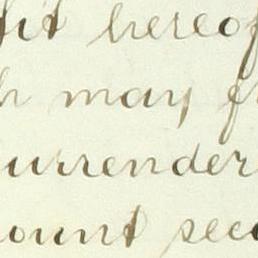 hereof
may
surrender
ount sec